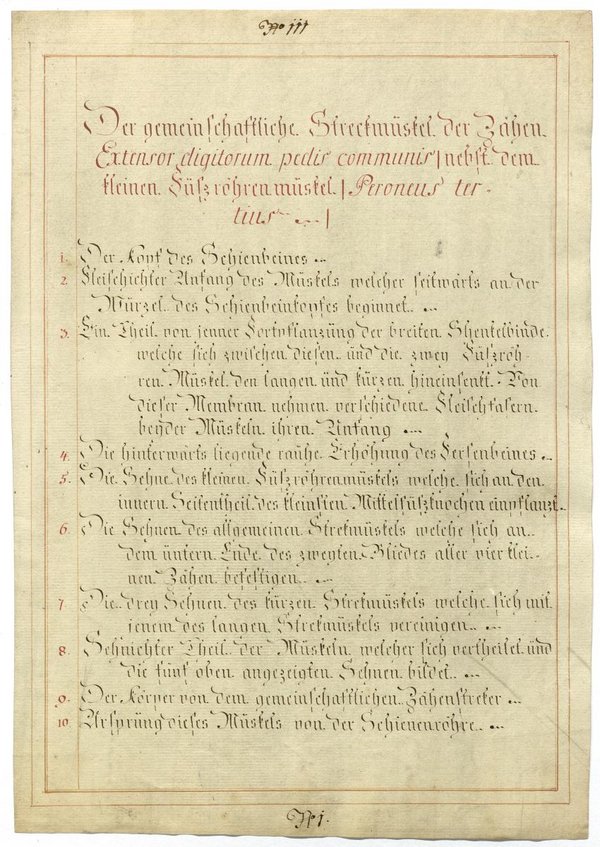 No 111
Der gemeinschaftliche Streckmüskel der Zähen
Extensor digitorum pedis communis | nebst dem
kleinen Füszröhrenmüskel | Peroneus ter-
tius |
1. Der Kopf des Schienbeines
2. Fleischichter Anfang des Müskels welcher seitwärts an der
Würzel des Schienbeinkopfes beginnet
3. Ein Theil von jenner Fortpflanzüng der breiten Shenkelbinde
welche sich zwischen diesen und die zwey Füszröh-
ren Müskel den langen und kürzen hineinsenkt. Von
dieser Membran nehmen verschiedene Fleischfasern
beyder Müskeln ihren Anfang
4. Die hinterwärts liegende raühe Erhöhung des Fersenbeines
5. Die Sehne des kleinen Füszröhrenmüskels welche sich an den
innern Seitentheil des kleinsten Mittelfüszknochen einpflanzt
6. Die Sehnen des allgemeinen Strekmüskels welche sich an
dem üntern Ende des zweyten Gliedes aller vier klei-
nen Zähen befestigen
7. Die drey Sehnen des kürzen Strekmüskels welche sich mit
jenem des langen Strekmüskels vereinigen
8. Sehnichter Theil der Müskeln welcher sich vertheilet und
die fünf oben angezeigten Sehnen bildet
9. Der Körper von dem gemeinschaftlichen Zähenstreker
10. Ursprüng dieses Müskels von der Schienenröhre
No 1.